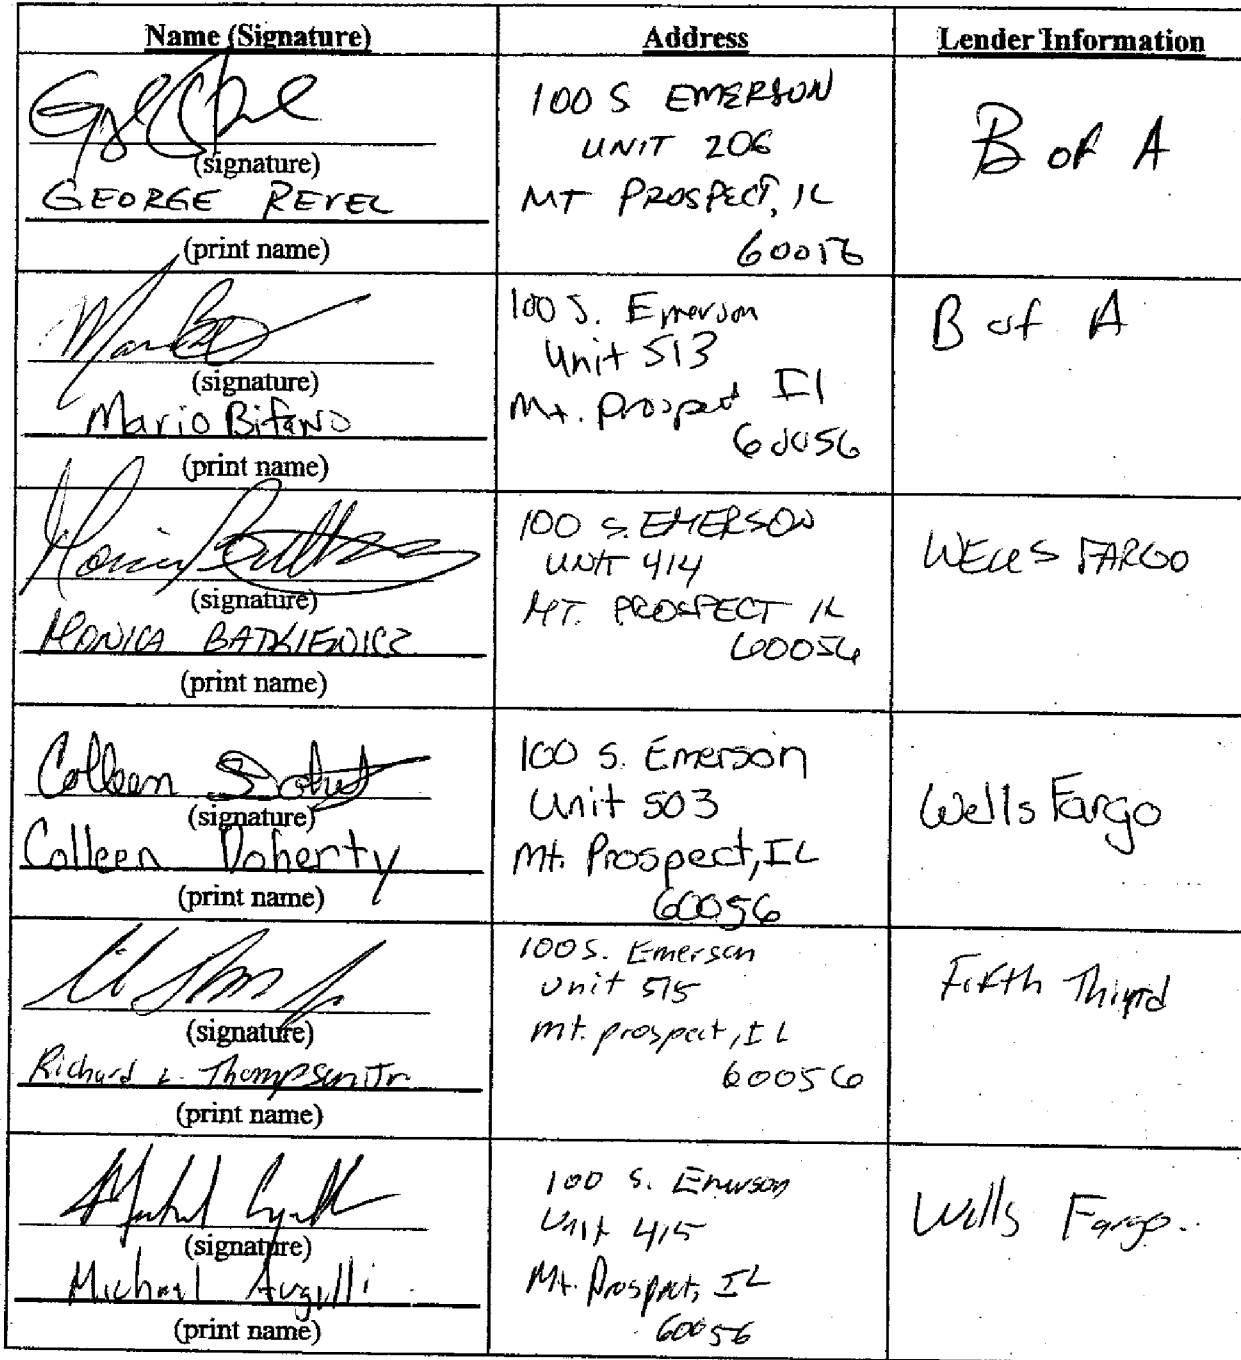 Name (Signature) Address Lender Information
(signature)
GEORGE REVEL
(print name)
100 S EMERSON
UNIT 206
MT PROSPECT, IL
60056
B of A
(signature)
Mario Bifano
(print name)
100 S. Emerson
Unit 513
Mt. Prospect Il
60056
B of A
(signature)
MONICA BATKIEWICZ
(print name)
100 S. EMERSON
UNIT 414
MT. PROSPECT IL
60056
WELLS FARGO
Colleen
(signature)
Colleen Doherty
(print name)
100 S. Emerson
Unit 503
Mt. Prospect, IL
60056
Wells Fargo
(signature)
Richard L. Thompson Jr
(print name)
100 S. Emerson
Unit 515
mt. prospect, IL
60056
Fifth Third
(signature)
Michael Augulli
(print name)
100 S. Emerson
Unit 415
Mt. Prospect, IL
60056
Wells Fargo.